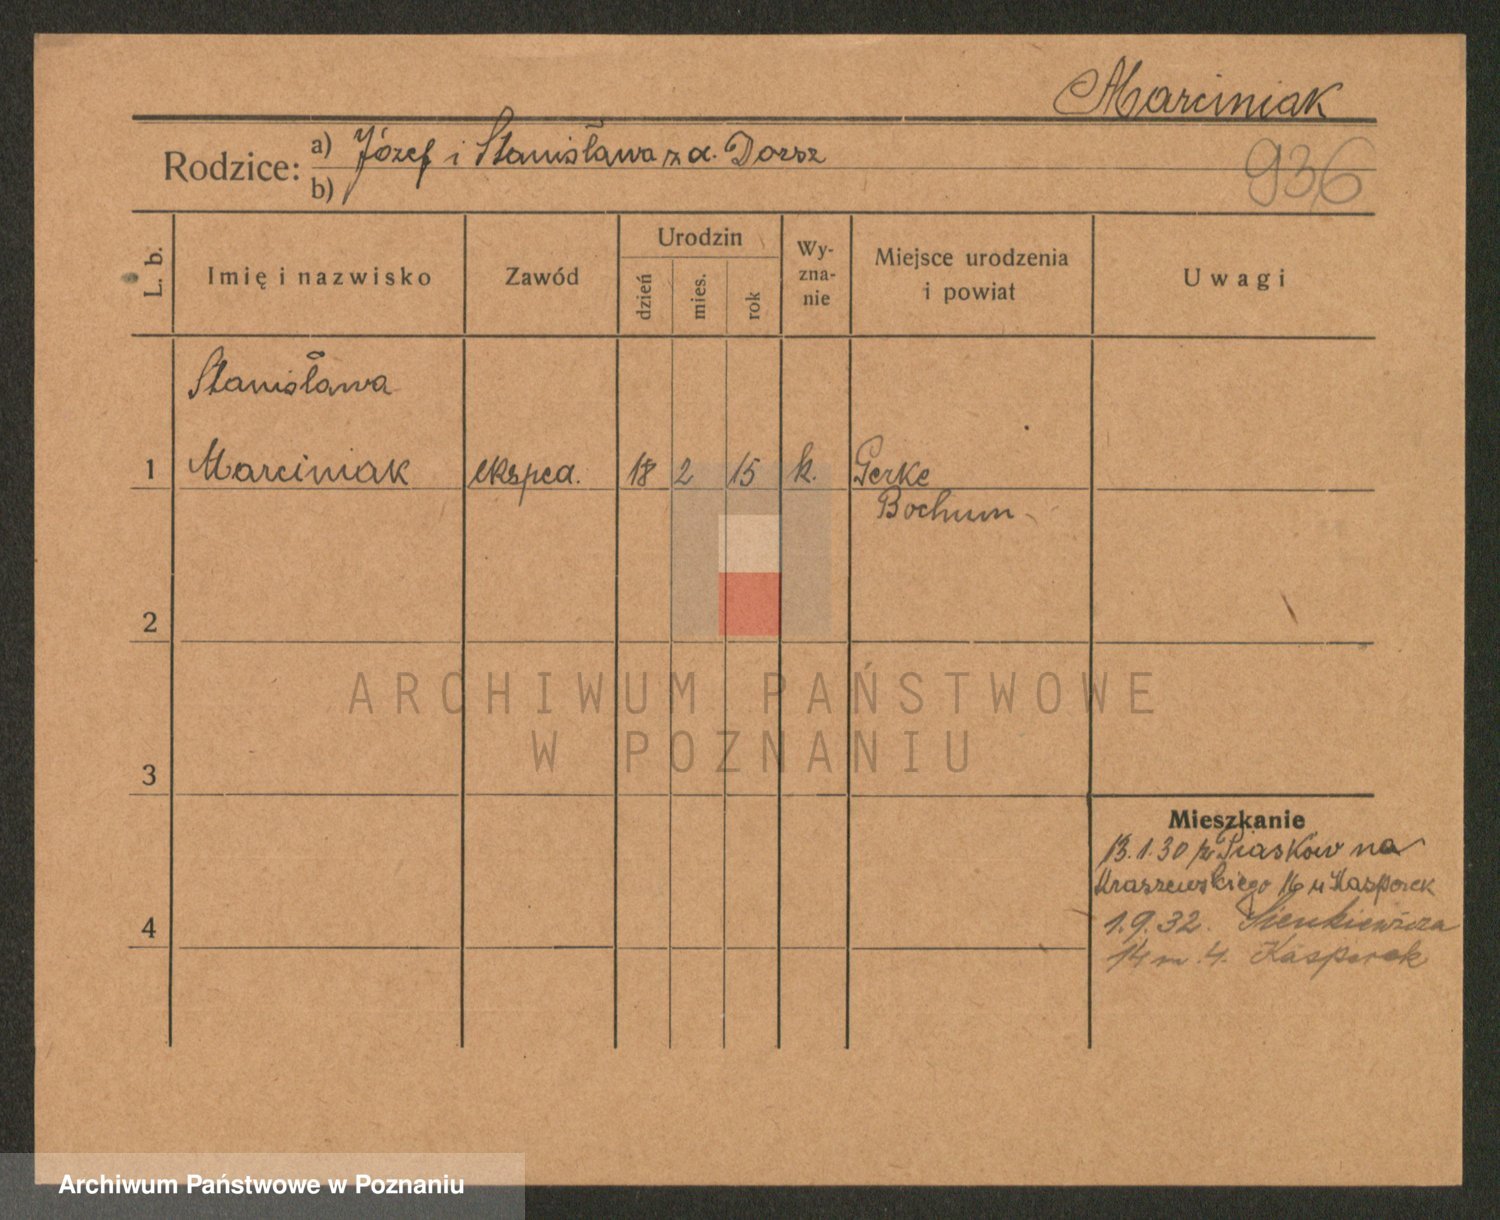 Marciniak
Rodzice: a) Józef i Stanisława z d. Dorsz
b)
936
L. b.
Imię i nazwisko
Zawód
Urodzin
dzień
mies.
rok
Wy-
zna-
nie
Miejsce urodzenia
i powiat
Uwagi
Stanisława
1 Marciniak eksped. 18 2 15 k. Gerke
Bochum
2
3
4
Mieszkanie
13.1.30 z Piasków na
Kraszewskiego 16 u Kasperek
1.9.32. Sienkiewicza
14 m. 4. Kasperek
ARCHIWUM PAŃSTWOWE
W POZNANIU
Archiwum Państwowe w Poznaniu